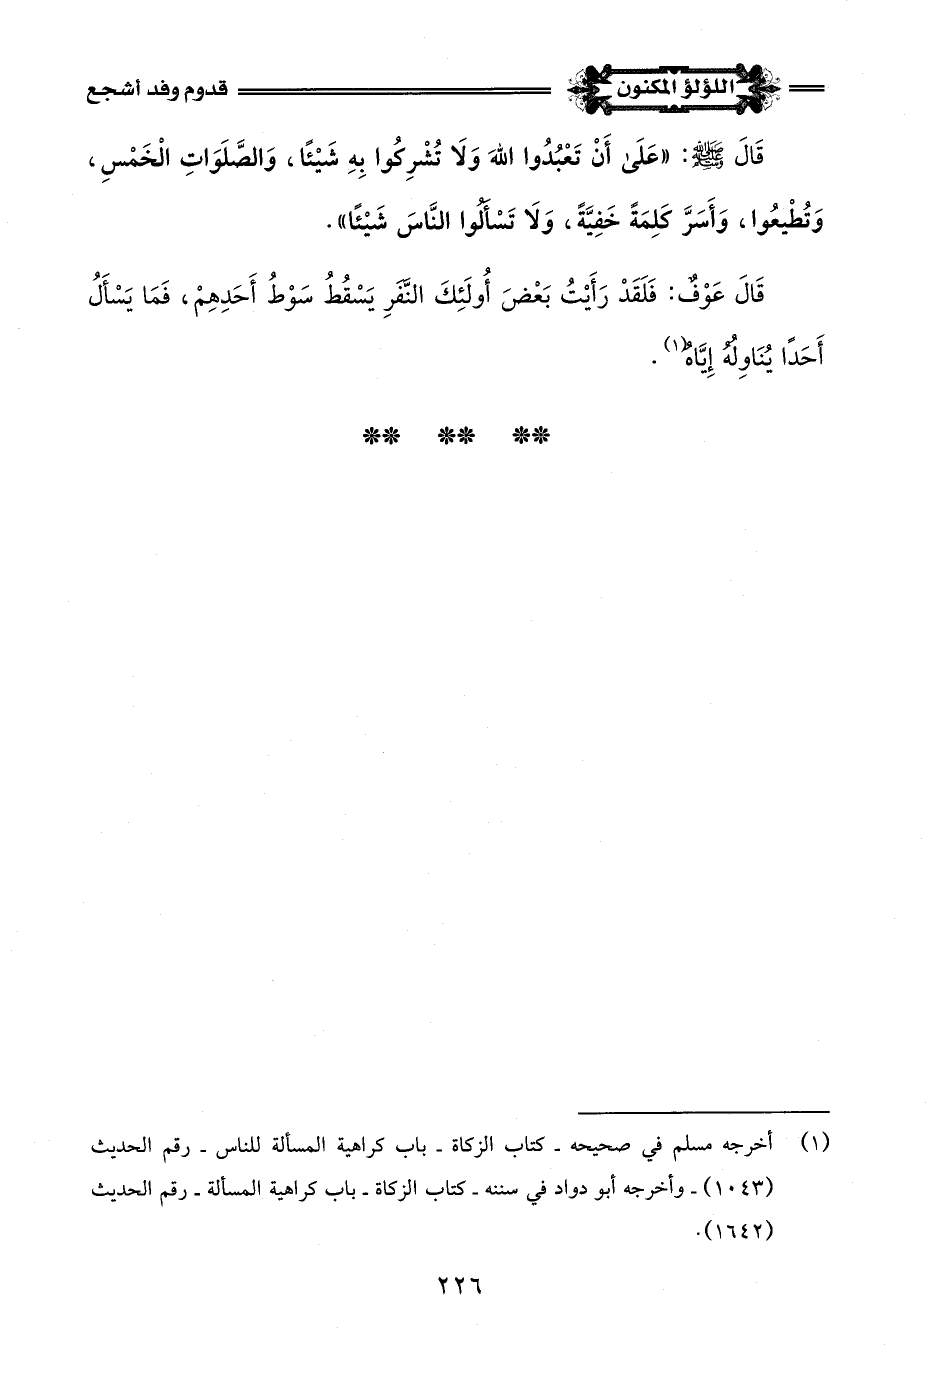 اللؤلؤ المكنون قدوم وفد أشجع
قَالَ ﷺ: «عَلَىٰ أَنْ تَعْبُدُوا اللهَ وَلَا تُشْرِكُوا بِهِ شَيْئًا، وَالصَّلَوَاتِ الْخَمْسِ،
وَتُطْيعُوا، وَأَسَرَّ كَلِمَةً خَفِيَّةً، وَلَا تَسْأَلُوا النَّاسَ شَيْئًا».
قَالَ عَوْفٌ: فَلَقَدْ رَأَيْتُ بَعْضَ أُولَئِكَ النَّفَرِ يَسْقُطُ سَوْطُ أَحَدِهِمْ، فَمَا يَسْأَلُ
أَحَدًا يُنَاوِلُهُ إِيَّاهُ(١).
** ** **
(١) أخرجه مسلم في صحيحه ـ كتاب الزكاة ـ باب كراهية المسألة للناس ـ رقم الحديث
(١٠٤٣) ـ وأخرجه أبو دواد في سننه ـ كتاب الزكاة ـ باب كراهية المسألة ـ رقم الحديث
(١٦٤٢).
٢٢٦